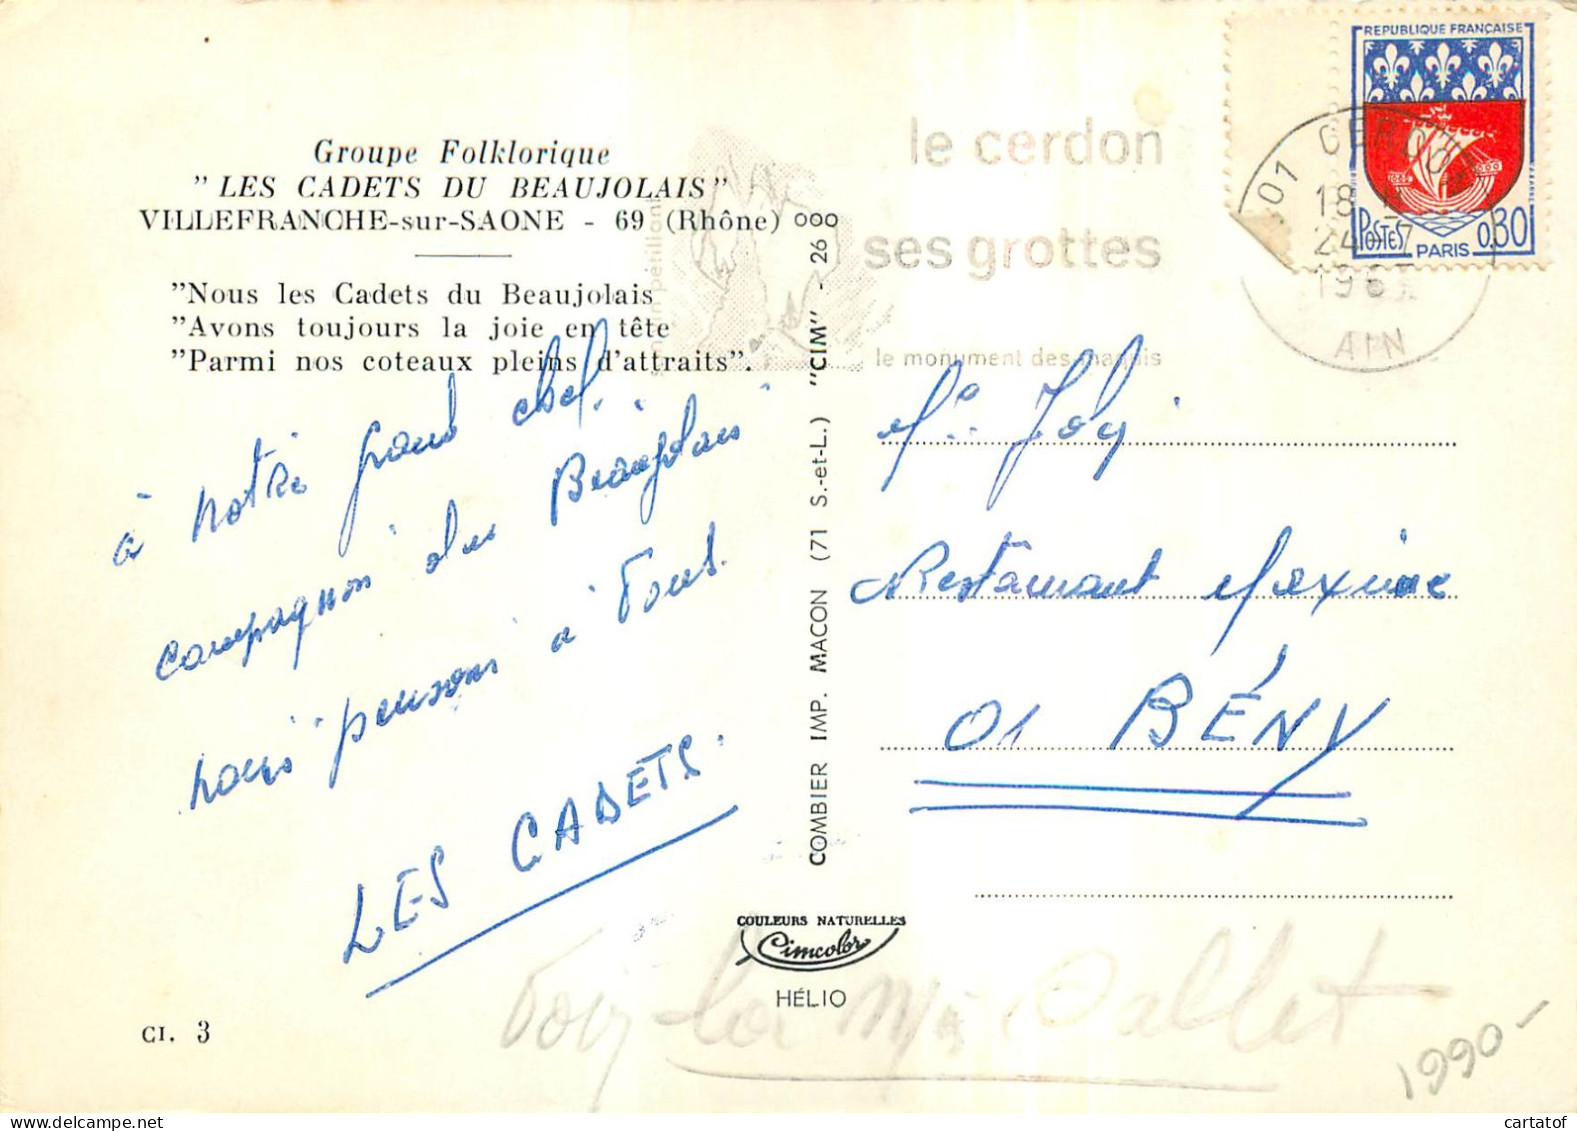 Groupe Folklorique
" LES CADETS DU BEAUJOLAIS "
VILLEFRANCHE-sur-SAONE - 69 (Rhône)
"Nous les Cadets du Beaujolais
"Avons toujours la joie en tête
"Parmi nos coteaux pleins d'attraits".
à notre grand chef
compagnon du Beaujolais
nous pensons à Tous.
LES CADETS.
CI. 3
COMBIER IMP. MACON (71 S.-et-L.) "CIM" - 26
COULEURS NATURELLES
Cimcolor
HÉLIO
le cerdon
ses grottes
le monument des maquis
son vin pétillant
REPUBLIQUE FRANÇAISE
POSTES 0,30
PARIS
01 CERDON
18 H
24 - 7
196
AIN
Joly
Restaurant Maxime
01 BÉNY
la
1990-
cartatof